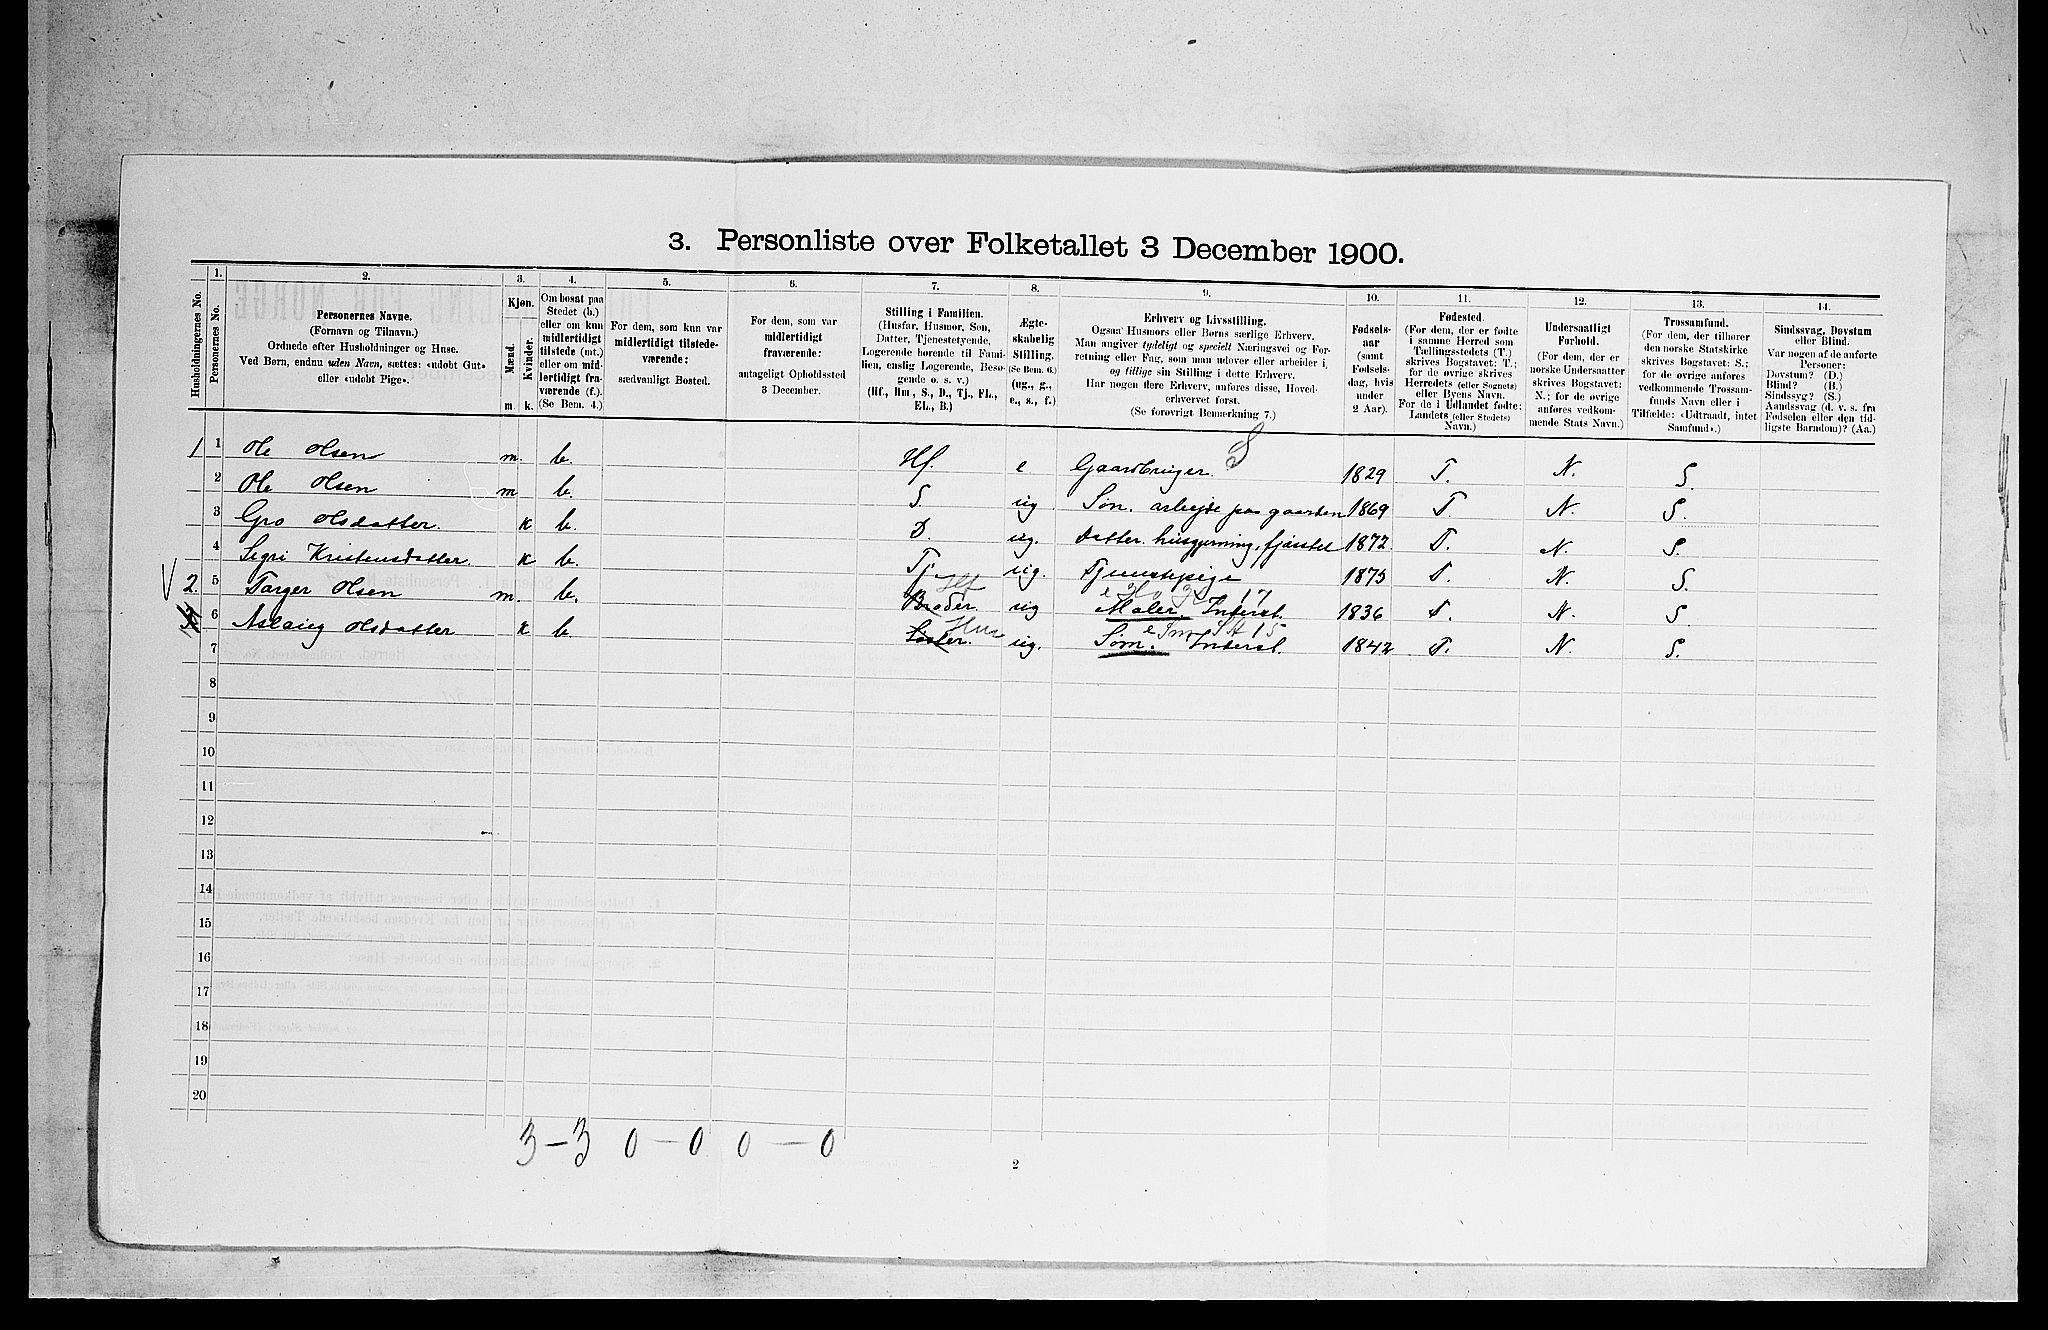 3. Personliste over Folketallet 3 December 1900.
Husholdningernes No.
1.
Personernes No.
2.
Personernes Navne.
(Fornavn og Tilnavn.)
Ordnede efter Husholdninger og Huse.
Ved Børn, endnu uden Navn, sættes: «udøbt Gut»
eller «udøbt Pige».
3.
Kjøn.
Mænd.
Kvinder.
m. k.
4.
Om bosat paa
Stedet (b.)
eller om kun
midlertidigt
tilstede (mt.)
eller om mid-
lertidigt fra-
værende (f.).
(Se Bem. 4.)
5.
For dem, som kun var
midlertidigt tilstede-
værende:
sædvanligt Bosted.
6.
For dem, som var
midlertidigt
fraværende:
antageligt Opholdssted
3 December.
7.
Stilling i Familien.
(Husfar, Husmor, Søn,
Datter, Tjenestetyende,
Logerende hørende til Fami-
lien, enslig Logerende, Besø-
gende o. s. v.)
(Hf., Hm., S., D., Tj., FL.,
EL., B.)
8.
Ægte-
skabelig
Stilling.
(Se Bem. 6.)
(ug., g.,
e., s., f.)
9.
Erhverv og Livsstilling.
Ogsaa Husmors eller Børns særlige Erhverv.
Man angiver tydeligt og specielt Næringsvei og For-
retning eller Fag, som man udøver eller arbeider i,
og tillige sin Stilling i dette Erhverv.
Har nogen flere Erhverv, anføres disse, Hoved-
erhvervet først.
(Se forøvrigt Bemærkning 7.)
10.
Fødsels-
aar
(samt
Fødsels-
dag, hvis
under
2 Aar).
11.
Fødested.
(For dem, der er fødte
i samme Herred som
Tællingsstedets (T.)
skrives Bogstavet: T.;
for de øvrige skrives
Herredets (eller Sognets)
eller Byens Navn.
For de i Udlandet fødte:
Landets (eller Stedets)
Navn.)
12.
Undersaatligt
Forhold.
(For dem, der er
norske Undersaatter
skrives Bogstavet:
N.; for de øvrige
anføres vedkom-
mende Stats Navn.)
13.
Trossamfund.
(For dem, der tilhører
den norske Statskirke
skrives Bogstavet: S.;
for de øvrige anføres
vedkommende Trossam-
funds Navn eller i
Tilfælde: «Udtraadt, intet
Samfund».)
14.
Sindssvag, Døvstum
eller Blind.
Var nogen af de anførte
Personer:
Døvstum? (D.)
Blind? (B.)
Sindssyg? (S.)
Aandssvag (d. v. s. fra
Fødselen eller den tid-
ligste Barndom)? (Aa.)
1 1 Ole Olsen m. b. Hf. e Gaardbruger. S 1829 T. N. S.
2 Ole Olsen m b. S. ug Søn. arbejde paa gaarden 1869 T. N. S.
3 Gro Olsdatter k b. D. ug. Datter. husgjerning, fjøsstel 1872. T. N. S.
4 Segri Kristensdatter k b. Tj. ug. Tjenestepige 1875 T. N. S.
2. 5 Targer Olsen m. b. Broder. Hf ug Maler. Inderst. 17 1836 T. N. S.
6 Aslaug Olsdatter k b. Søster. ug. Søm. Inderst. 15 1842 T. N. S.
7
8
9
10
11
12
13
14
15
16
17
18
19
20
3 – 3 0 – 0 0 – 0
2